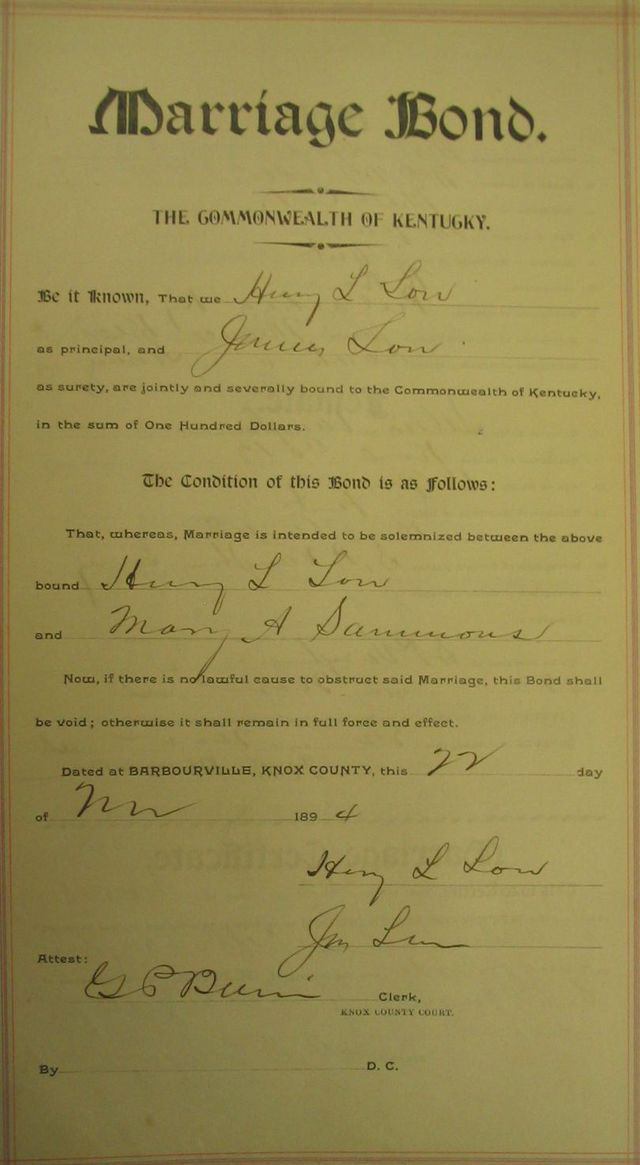 Marriage Bond.
THE COMMONWEALTH OF KENTUCKY.
Be it Known, That we Henry L Low
as principal, and James Low
as surety, are jointly and severally bound to the Commonwealth of Kentucky,
in the sum of One Hundred Dollars.
The Condition of this Bond is as Follows:
That, whereas, Marriage is intended to be solemnized between the above
bound Henry L Low
and Mary A Sammons
Now, if there is no lawful cause to obstruct said Marriage, this Bond shall
be void; otherwise it shall remain in full force and effect.
Dated at BARBOURVILLE, KNOX COUNTY, this 22 day
of Nov 1894
Henry L Low
Jas Low
Attest:
G P Clerk,
KNOX COUNTY COURT.
By D. C.